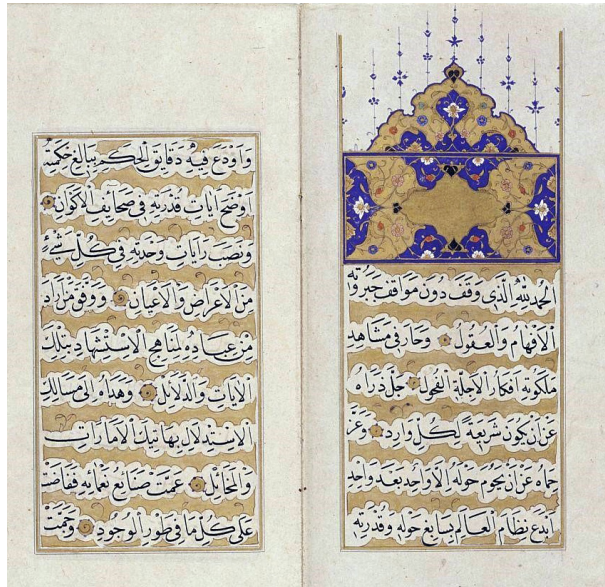 الحمد لله الذى وقف دون مواقف جبروته
الافهام والعقول وحار فى مشاهد
ملكوته افكار الاجلة الفحول جل ذراه
عن ان يكون شريعة لكل وارد وعز
حماه عن ان يحوم حوله الا واحد بعد واحد
ابدع نظام العالم ببالغ حوله وقدرته
واودع فيه دقايق الحكم ببالغ حكمته
اوضح ايات قدرته فى صحايف الاكوان
ونصب رايات وحدته فى كل شئ
من الاعراض والاعيان ووفق من اراد
من عباده لمناهج الاستشهاد بتلك
الايات والدلايل وهداه الى مسالك
الاستدلال بهاتيك الامارات
والمخائل عمت صنايع نعمائه ففاضت
على كل ما فى طور الوجود وعمت